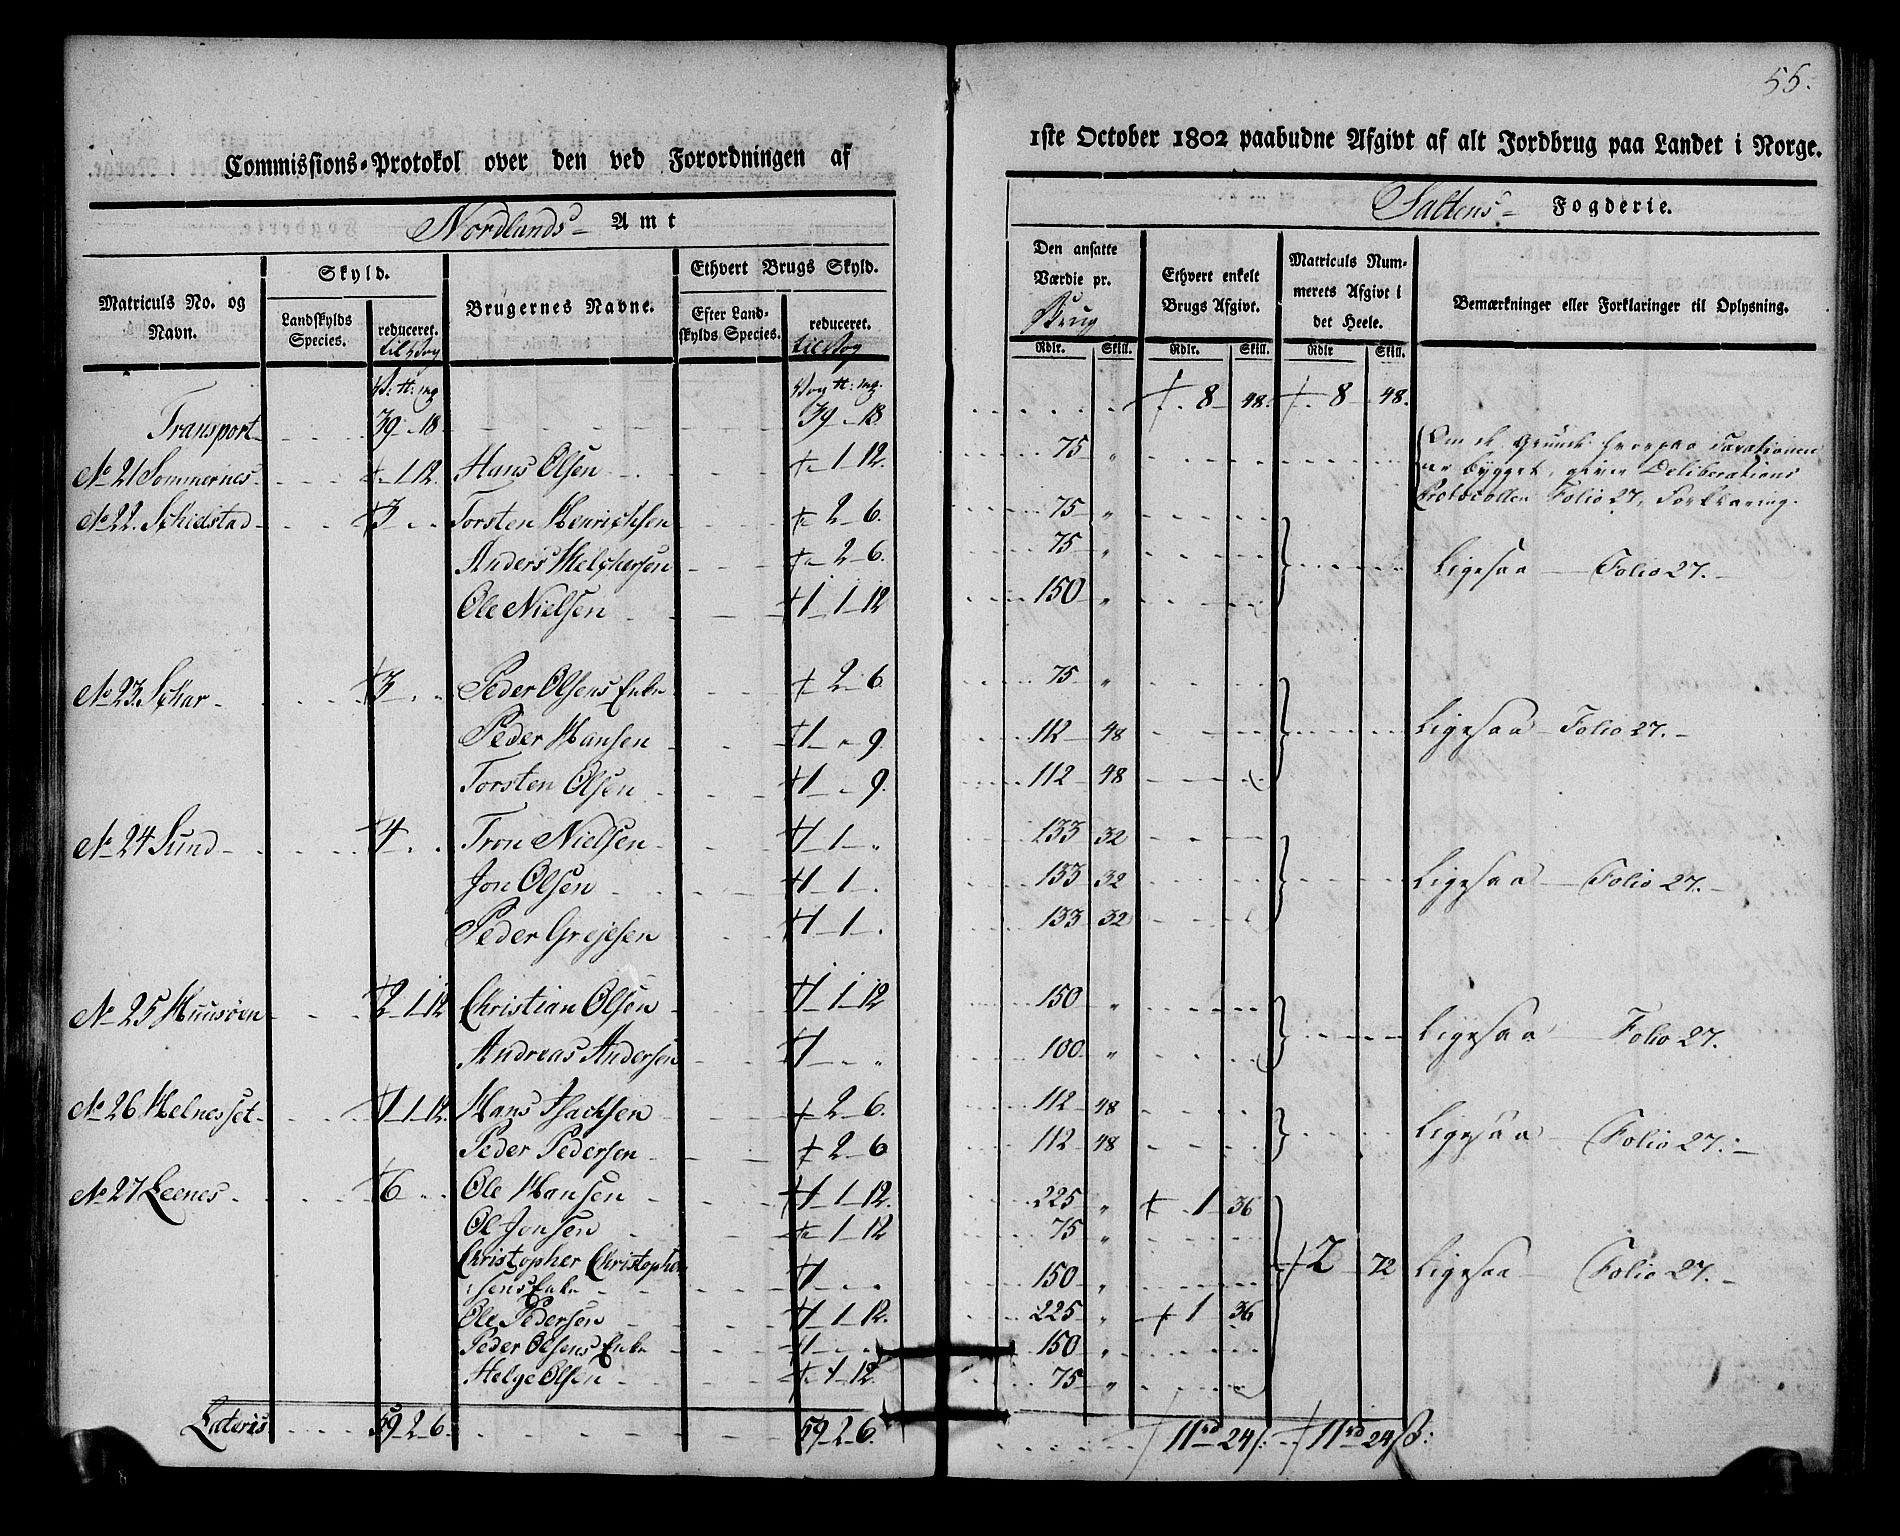 55.
Commissions-Protokol over den ved Forordningen af 1ste October 1802 paabudne Afgivt af alt Jordbrug paa Landet i Norge.
Nordlands Amt Saltens Fogderie.
Matriculs No. og Navn. | Skyld. Landskylds Species. | reduceret. til Vog | Brugernes Navne. | Ethvert Brugs Skyld. Efter Landskylds Species. | reduceret. til Vog | Den ansatte Værdie pr. Brug Rdlr. Skill. | Ethvert enkelt Brugs Afgivt. Rdlr. Skill. | Matriculs Nummerets Afgivt i det Heele. Rdlr Skill. | Bemærkninger eller Forklaringer til Oplysning.
V: tt: mg | Vog tt: mg.
Transport | 39 - 18 | 39 - 18 | 8 48. | 8 48.
No 21 Sommernes | - 1 12. | Hans Olsen | - 1 - 12. | 75 " | Om de Grunde hvorpaa Taxationen
er bygget, giver Deliberations
Protocollen Folio 27, Forklaring.
No 22. Skidstad | 3 - - | Torsten Henrichsen | 2 - 6. | 75 "
Anders Melchersen | 2 - 6. | 75 " | Ligesaa Folio 27.
Ole Nielsen | 1 - 1 - 12 | 150 "
No 23. Skar | 3 - - | Peder Olsens Enke | 2 - 6. | 75 "
Peder Hansen | 1 - - 9. | 112 48 | Ligesaa Folio 27.
Torsten Olsen | 1 - - 9. | 112 48
No 24 Sund | 4 - - | Tron Nielsen | 1 - 1 - " | 133 32
Jon Olsen | 1 - 1 - | 133 32 | Ligesaa Folio 27.
Peder Grejesen | 1 - 1 - | 133 32
No 25 Huusøen | 2 - 1 - 12 | Christian Olsen | 1 - 1 - 12 | 150 "
Andreas Andersen | 1 - - " | 100 " | Ligesaa Folio 27.
No 26 Helnesset | 1 - 1 - 12. | Hans Isachsen | 2 - 6. | 112 48
Peder Pedersen | 2 - 6 | 112 48 | Ligesaa Folio 27.
No 27 Leenes | 6 - - | Ole Hansen | 1 - 1 - 12. | 225 " | 1 36
Ol Jonsen | - 1 - 12 | 75 "
Christopher Christopher
sens Enke | 1 - - | 150 " | 2 72 | Ligesaa Folio 27.
Ole Pedersen | 1 - 1 - 12. | 225 " | 1 36
Peder Olsens Enke | 1 - - | 150 "
Helge Olsen | - 1 - 12. | 75 "
Lateris | 59 - 2 - 6. | 59 - 2 - 6. | 11 rd 24 ß: | 11 rd 24 ß: